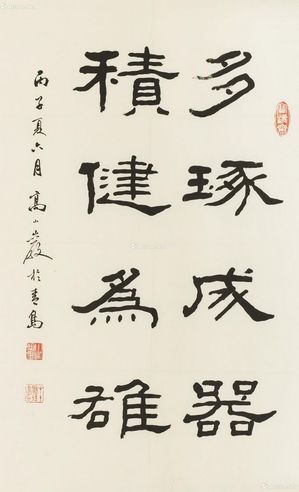 多琢成器
積健為雄
丙子夏六月高小岩於青島